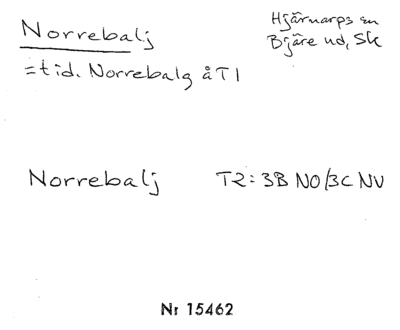 Norrebalj
Hjärnarps sn
Bjäre hd, Sk
= tid. Norrebalg å T1
Norrebalj T2: 3B NO/3C NV
Nr 15462